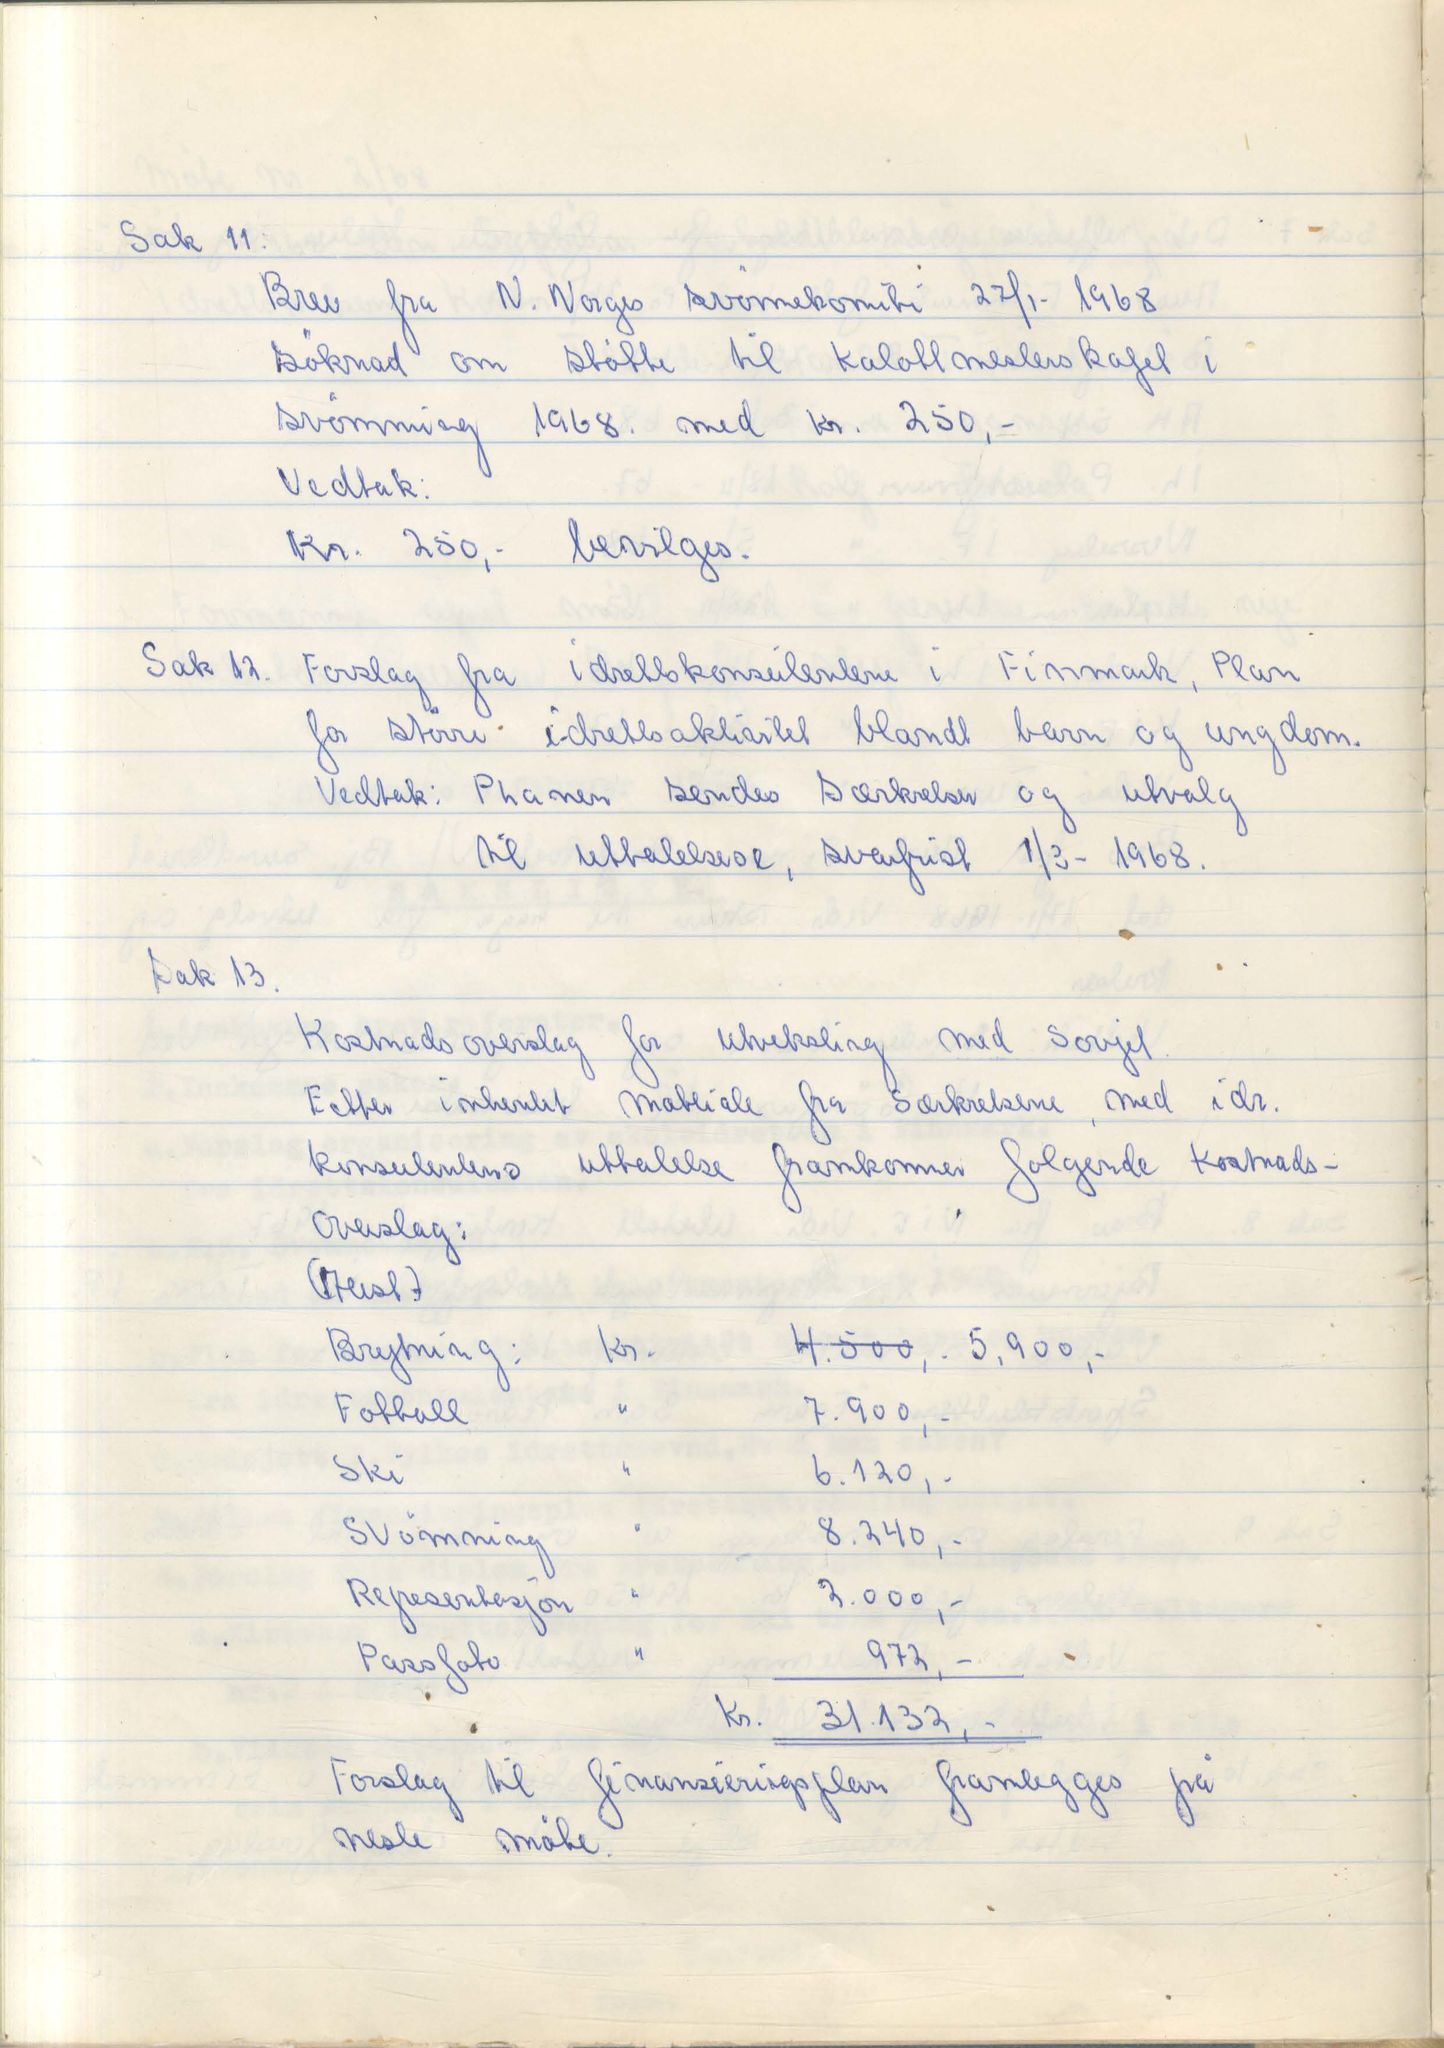 Sak 11:
Brev fra N. Norges svömekomite 27/1- 1968
söknad om stötte til Kalottmesterskapet i
svömming 1968. med kr. 250,-
Vedtak:
Kr. 250,- bevilges.
Sak 12. Forslag fra idrettskonsulentene i Finmark, Plan
for större idrettsaktivitet blandt barn og ungdom.
Vedtak: Planen sendes Særkretser og utvalg
til uttalelse, svarfrist 1/3- 1968.
Sak 13.
Kostnadsoverslag for utveksling med Sovjet.
Etter inhentet matriale fra Særkretsene, med idr.
konsulentens uttalelse framkommer følgende Kostnads-
overslag:
Brytning: Kr. 4.500,- 5,900,-
Fotball " 7.900,-
Ski " 6.120,-
Svömning " 8.240,-
Representasjon " 2.000,-
Passfoto " 972,-
Kr. 31.132,-
Forslag til finansieringsplan framlegges på
neste møte.